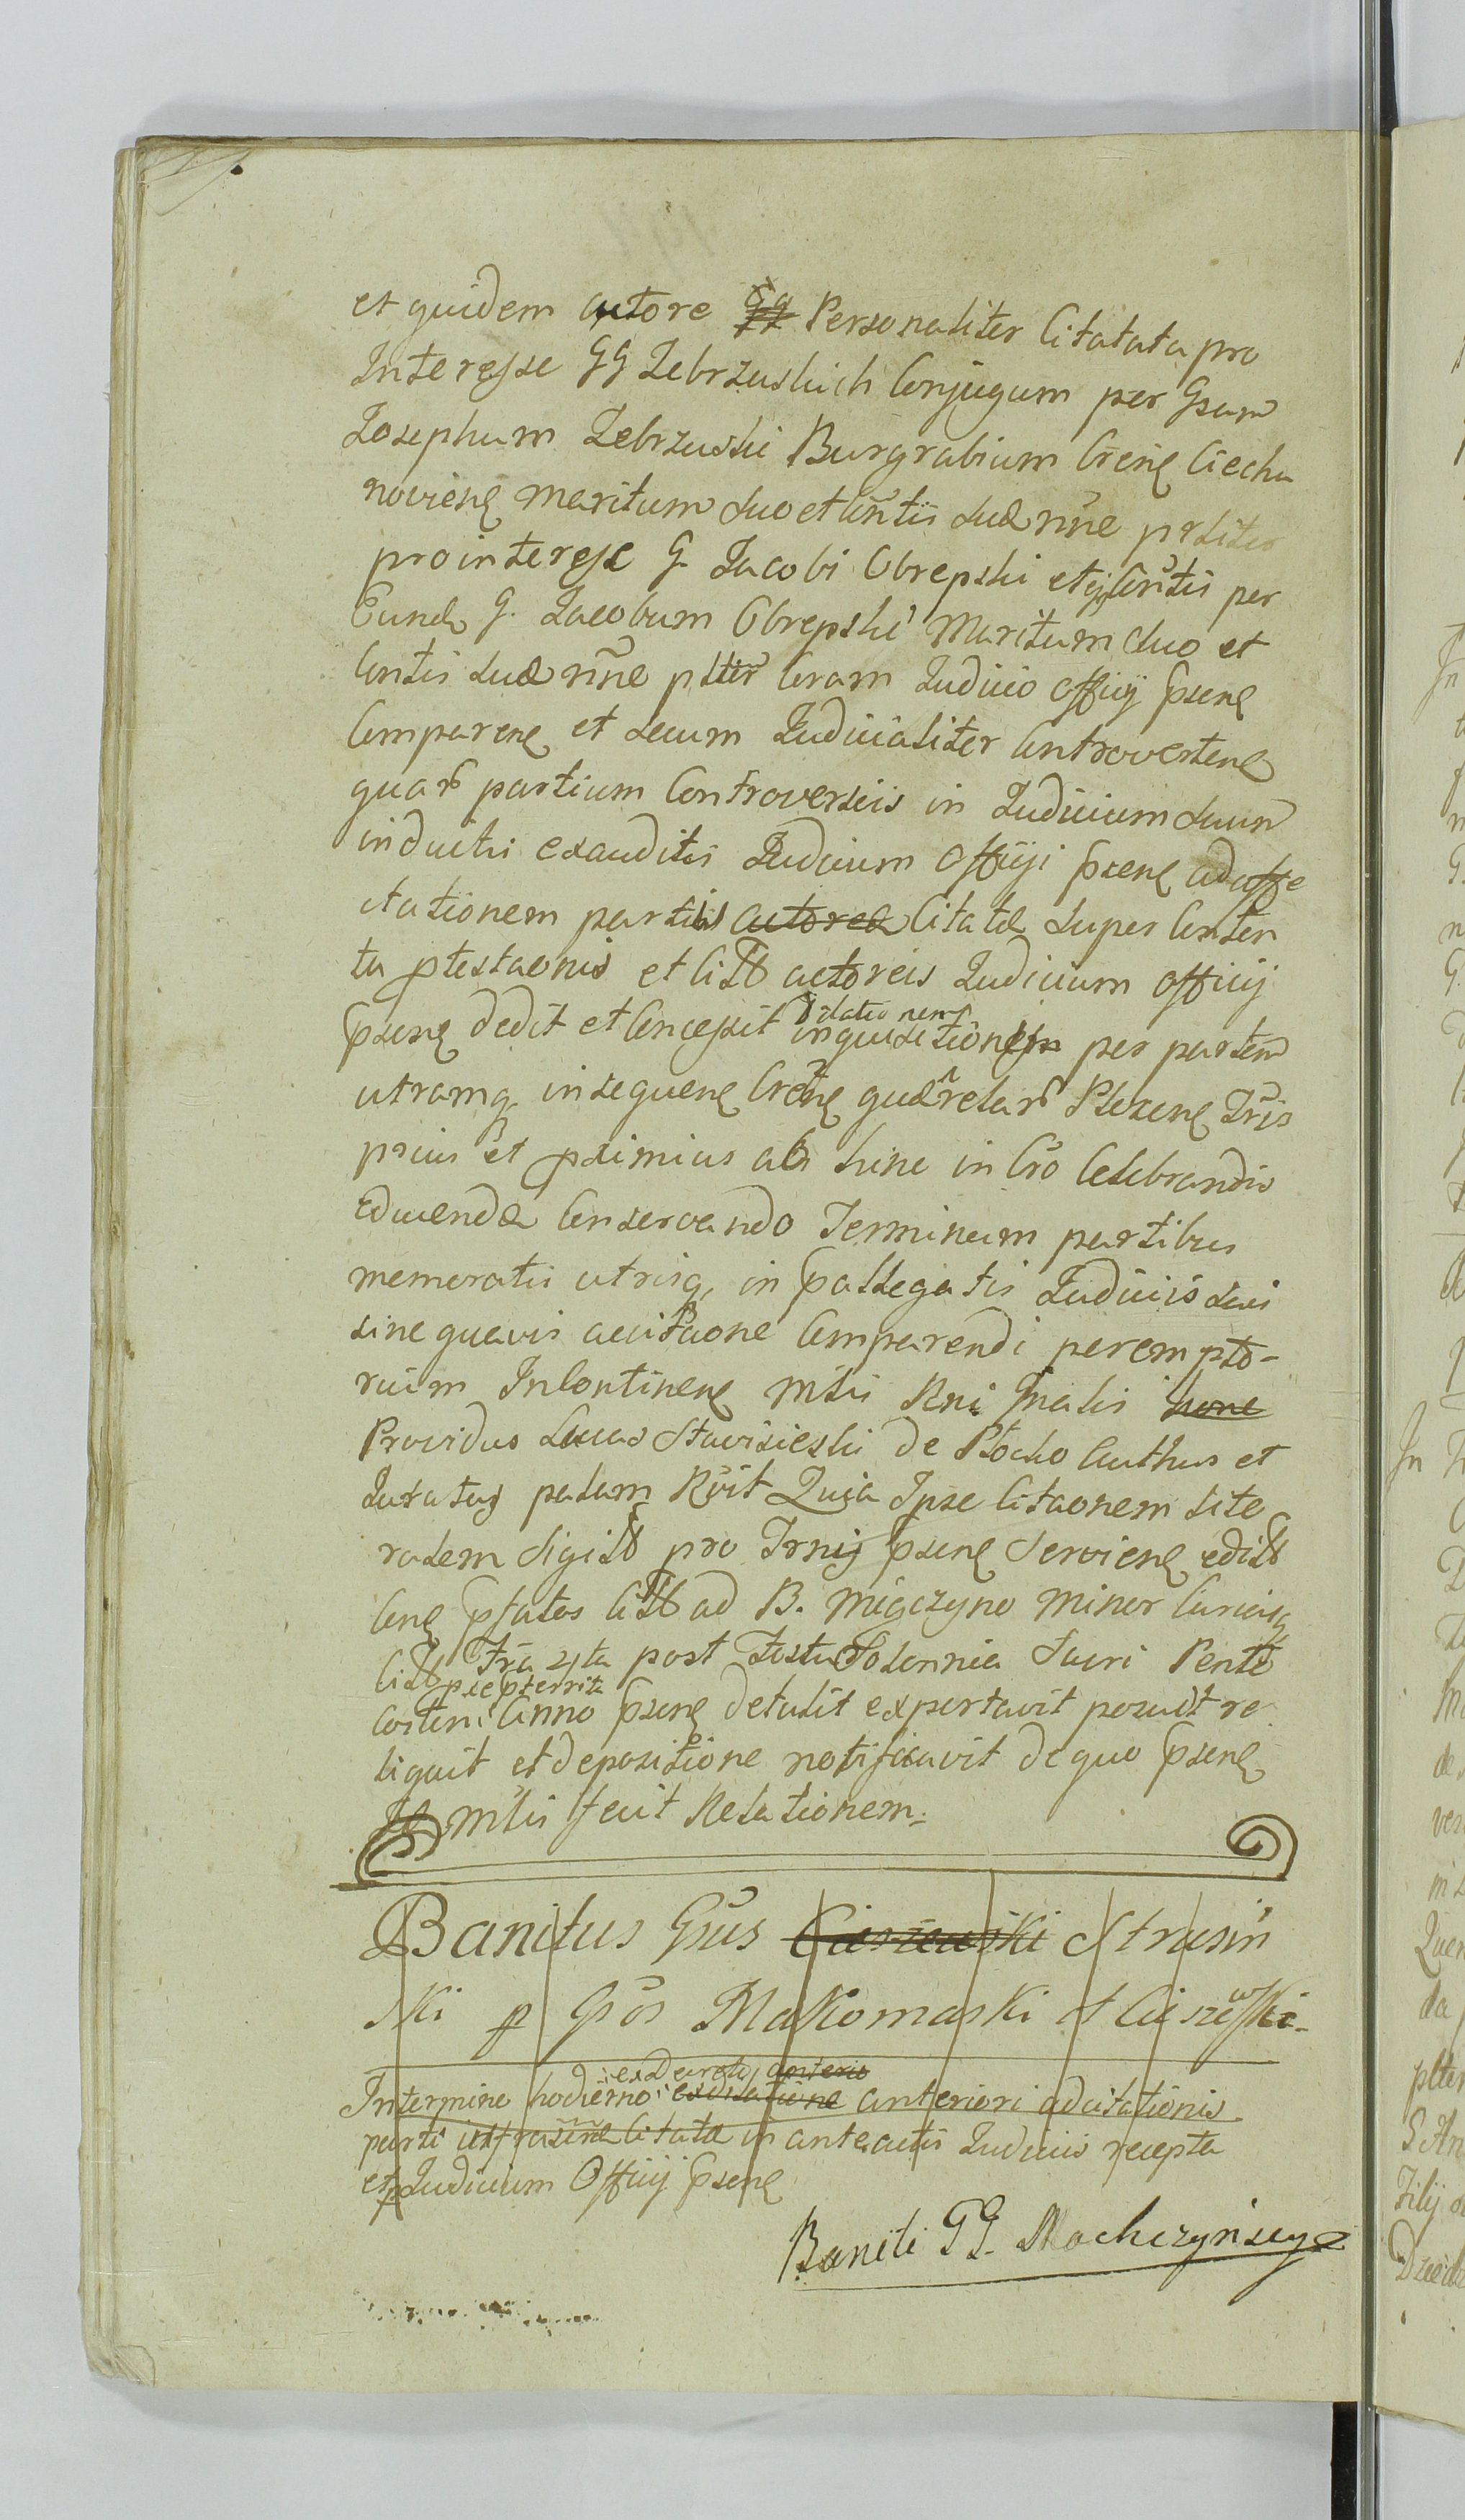 et quidem actore Personaliter Citatata pro
Interesse GG Zebrzuskich Conjugum per Gsum
Josephum Zebrzuski Burgrabium Crens Ciecha
noviens maritum suo et Conttis suæ nñe
pro interesse G. Jacobi Obrepski et ejus Conttis per
Eund G. Jacobum Obrepski Maritum suo et
Conttis suæ nñe plttr Coram Judicio Officij psens
Comparens et secum Judicialiter Controvertens
quar partium Controversiis in Judicium suum
inductis exauditis Judicium Officiji psens ad affe
ctationem partis actorea Citatæ super Conten
ta ptestaonis et Citt actoreis Judicium officij
dilationem
psens dedit et Concessit inquisitionem per partem
utramq, insequens quærelar Plosens Tris
prius et primius ab hinc in Cro Celebrandis
educenda Conservando Terminum partibus
memoratis utrisq, in pallegatis Judiciis sui
sine quavis accitaone Comparendi perempto-
rium In Continens mtii Rni Gnalis hone
Providus Lucas Stavisieski de Plocko Authus et
Juratus palam Rvit Quia Ipse Citaonem lite
ralem Sigill pro Trnij psens Serviens edill
Cens pfatos Citt ad B. Migczyno minor Curiasq
Citt Fria 4ta post Festa Solennia Sacri Pente
prepterrita
costeni Anno psens detulit exportavit posuit re
liquit et depositione notificavit de quo psens
mtii fecit Relationem.
Banitus Gsus Cieszewski Strusiń
ski p Gsos Makomaski et Cieszewski.
ex Decreto, anterio
In termine hodierno anteriori adcitationis
parti Citatæ in anteactis Judiciis recepta
et Judicium Officij psens
Baniti GG. Mochczyńscy